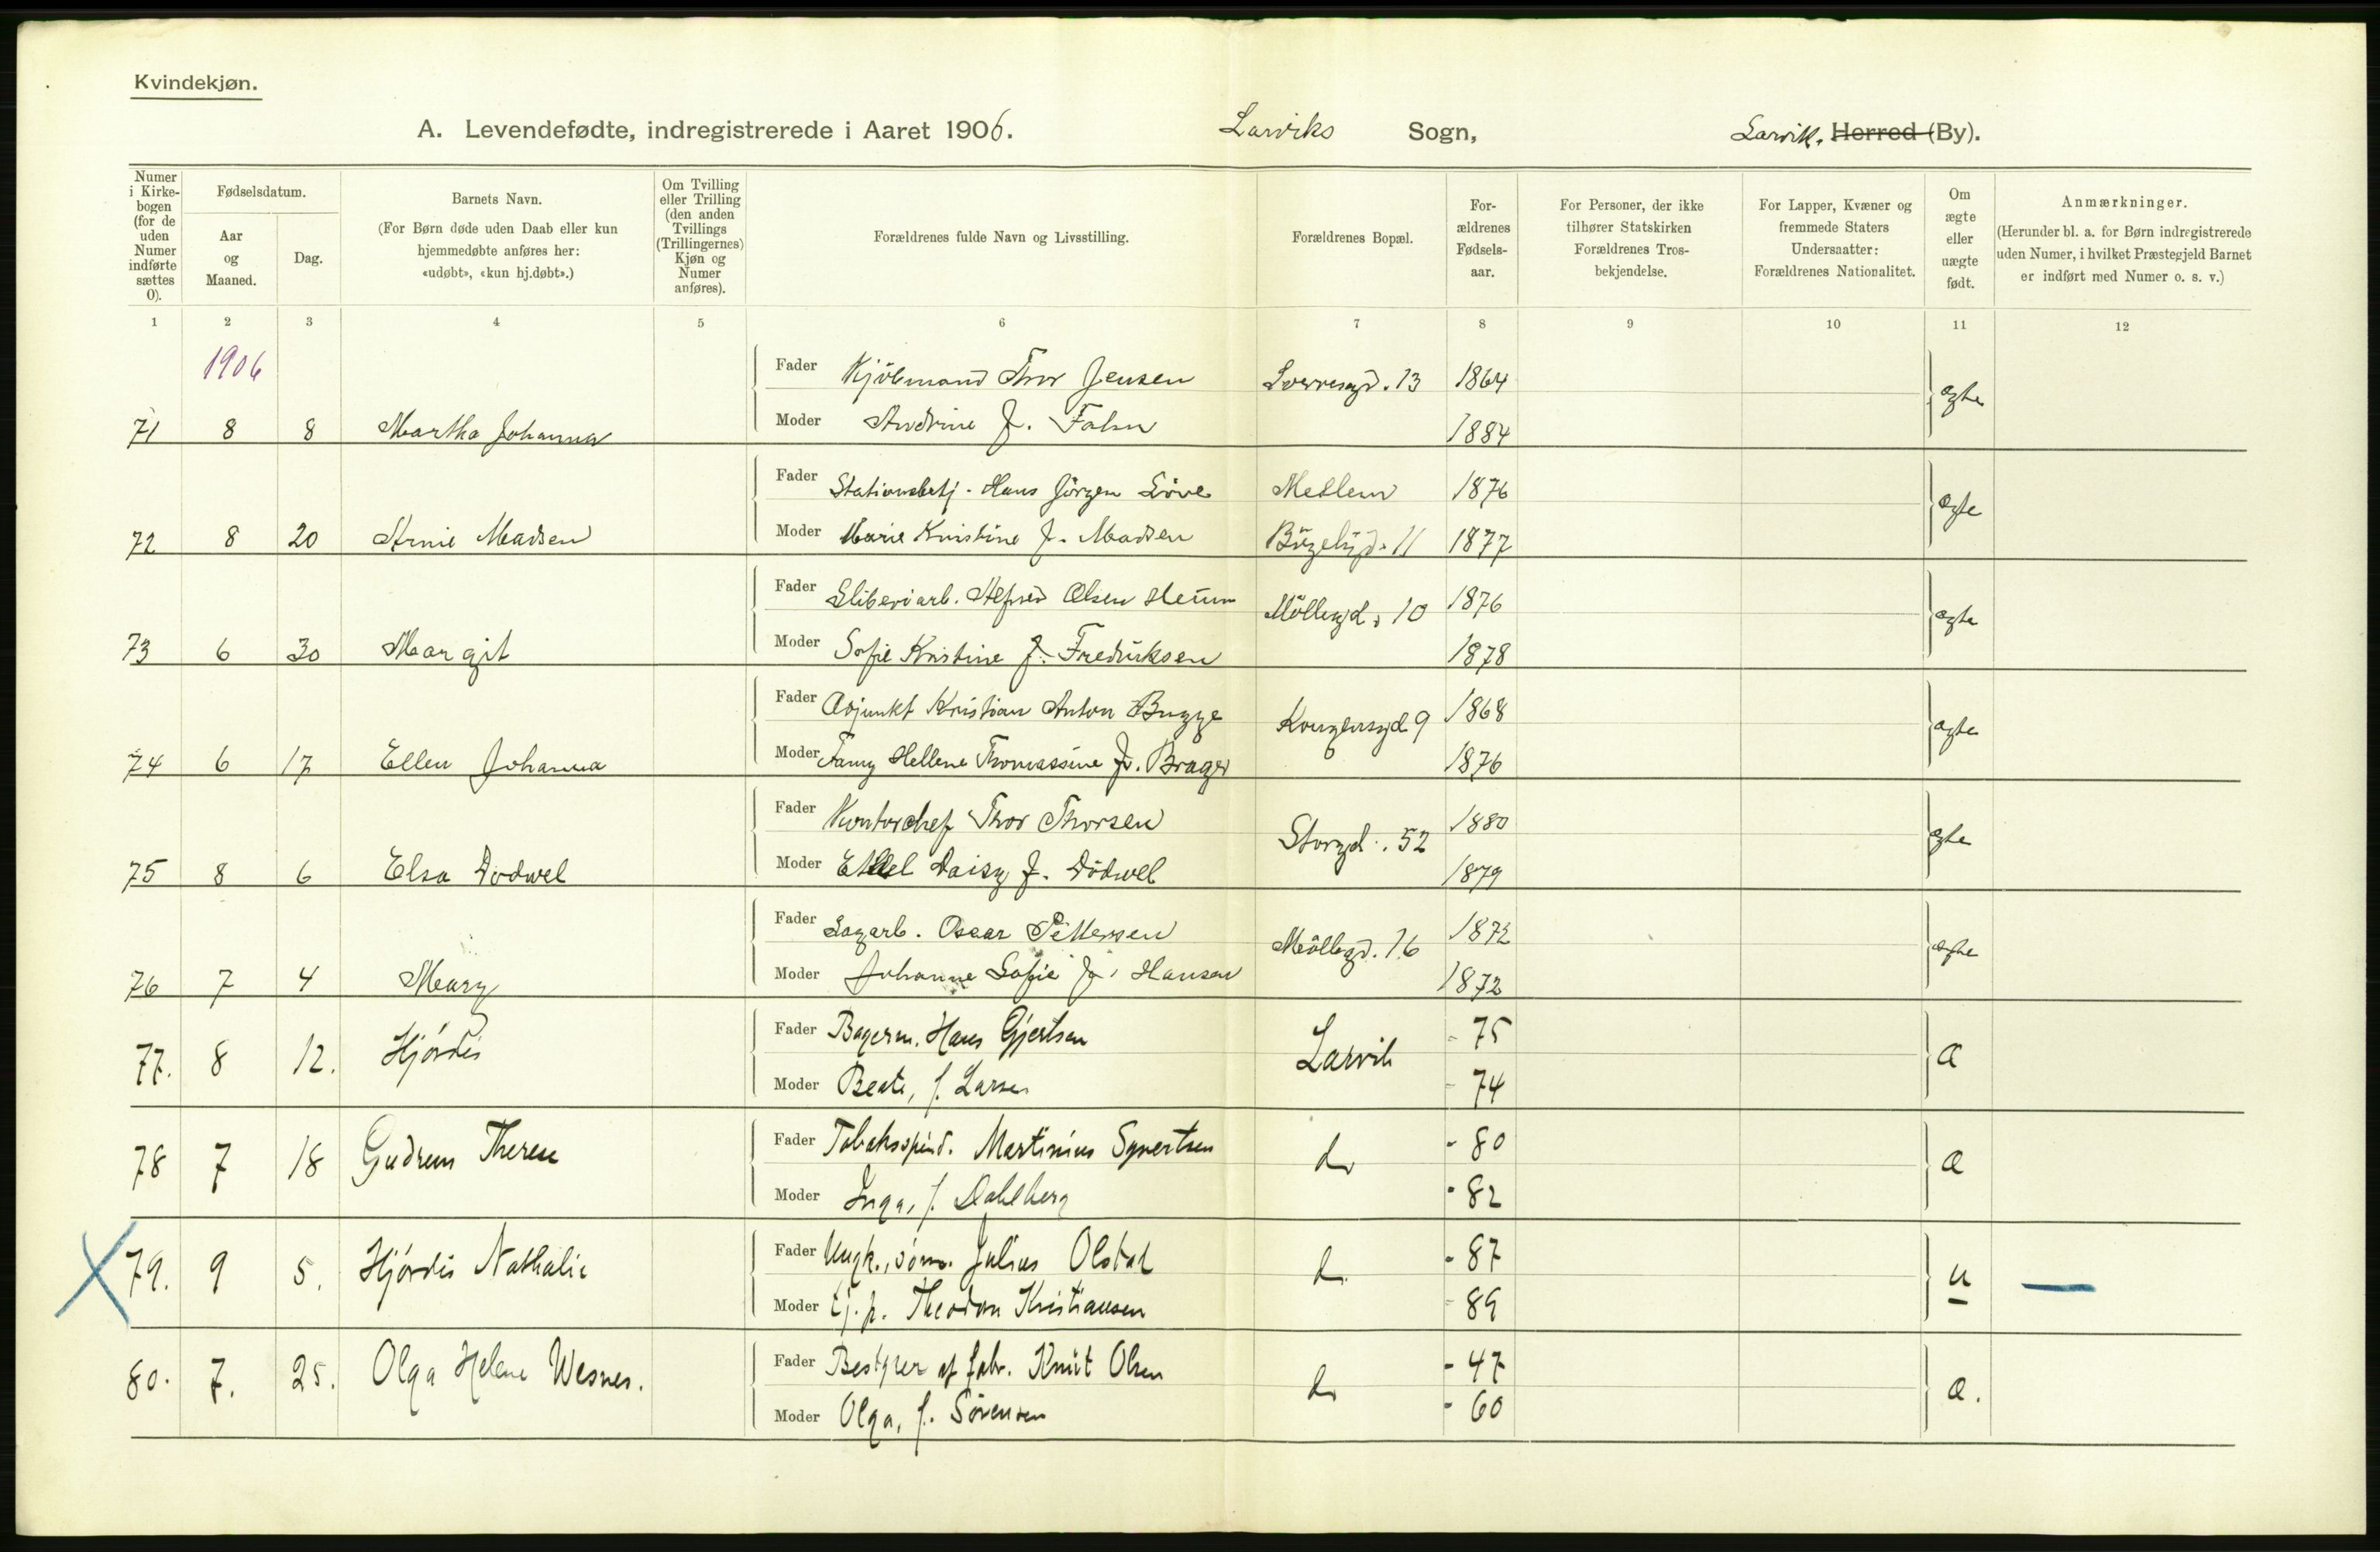 Kvindekjøn.
A. Levendefødte, indregistrerede i Aaret 1906. Larviks Sogn, Larvik. Herred (By).
Numer i Kirkebogen (for de uden Numer indførte sættes 0).
Fødselsdatum.
Aar og Maaned.
Dag.
Barnets Navn.
(For Børn døde uden Daab eller kun hjemmedøbte anføres her: «udøbt», «kun hj.døbt».)
Om Tvilling eller Trilling (den anden Tvillings (Trillingernes) Kjøn og Numer anføres).
Forældrenes fulde Navn og Livsstilling.
Forældrenes Bopæl.
Forældrenes Fødselsaar.
For Personer, der ikke tilhører Statskirken Forældrenes Trosbekjendelse.
For Lapper, Kvæner og fremmede Staters Undersaatter: Forældrenes Nationalitet.
Om ægte eller uægte født.
Anmærkninger.
(Herunder bl. a. for Børn indregistrerede uden Numer, i hvilket Præstegjeld Barnet er indført med Numer o. s. v.)
1 2 3 4 5 6 7 8 9 10 11 12
1906
Fader Kjöbmand Thor Jensen 13 1864 ægte
71 8 8 Martha Johanna Moder Andrine f. 1884
Fader Stationsbetj. Hans Jörgen Löve Mellem 1876 ægte
72 8 20 Madsen Moder Marie Kristine f. Madsen Bögelyd. 11 1877
Fader Sliberiarb. Alfred Olsen Möllegd. 10 1876 ægte
73 6 30 Margit Moder Sofie Kristine f. Fredriksen 1878
Fader Adjunkt Kristian Anton Bugge Kongensgd 9 1868 ægte
74 6 17 Ellen Johanna Moder Fanny Hellene Thomassine f. Brager 1876
Fader Kontorchef Thor Thorsen Storgd. 52 1880 ægte
75 8 6 Elsa Dodwel Moder Ethel Daisy f. Dödwel 1879
Fader Sagarb. Oscar Pettersen Möllegd. 16 1872 ægte
76 7 4 Mary Moder Johanne Sofie f. Hansen 1872
77. 8 12. Hjördis Fader Bagerm. Hans Gjertsen Larvik - 75 æ
Moder Beate, f. Larsen - 74
78 7 18 Gudrun Therese Fader Tobaksspind. Martinius Syvertsen do - 80 æ
Moder Inga, f. Dahlberg - 82
79. 9 5. Hjórdis Nathalie Fader Ungk., söm. Julius Olstad do - 87 u —
Moder tj. p. Theodora Kristiansen - 89
80. 7. 25. Olga Helene Wesnes. Fader Bestyrer af fabr. Knut Olsen do - 47 æ.
Moder Olga, f. Sörensen - 60